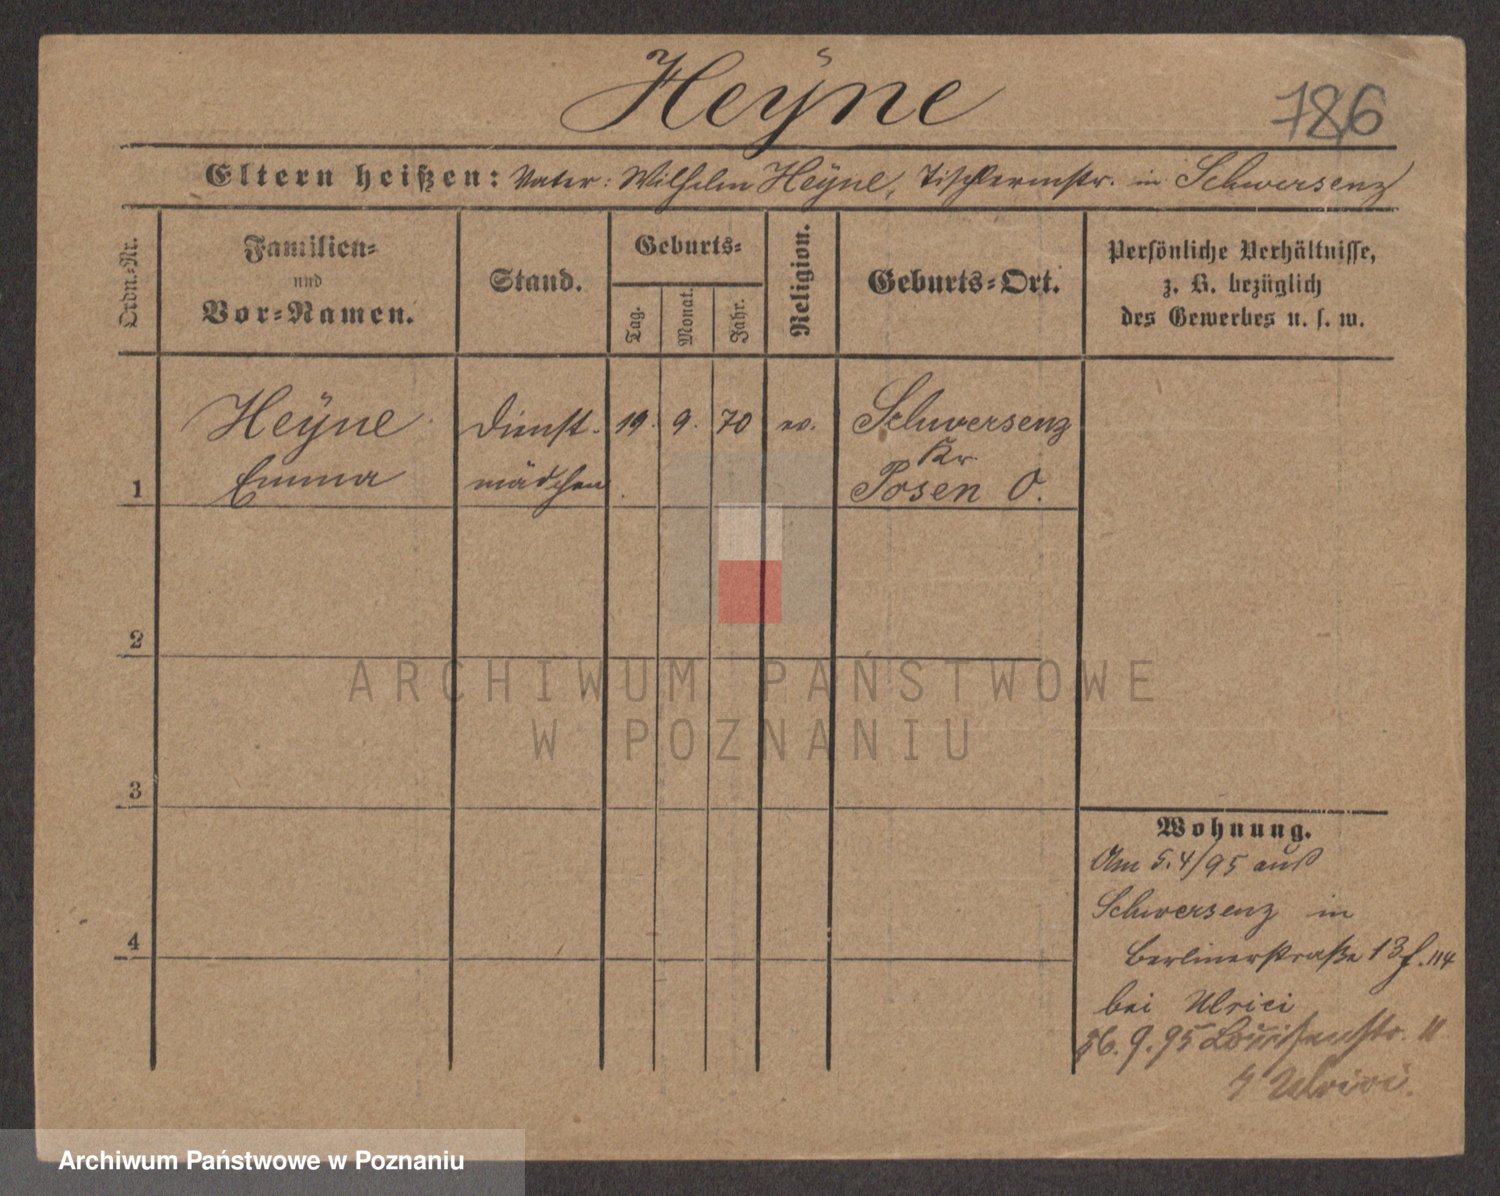 Heÿne
786
Eltern heißen: Vater: Wilhelm Heÿne, Tischlermstr. in Schwersenz
Ordn.-Nr.
Familien-
und
Vor-Namen.
Stand.
Geburts-
Tag.
Monat.
Jahr.
Religion.
Geburts-Ort.
Persönliche Verhältnisse,
z. B. bezüglich
des Gewerbes u. s. w.
1
Heÿne
Emma
Dienst-
mädchen
19.
9.
70
ev.
Schwersenz
Kr.
Posen O.
2
3
4
Wohnung.
Am 5.4/95 aus
Schwersenz in
Berlinerstraße 13 f. 114
bei Ulrici
26.9.95 Louisenstr. 11
Ulrici.
ARCHIWUM PAŃSTWOWE
W POZNANIU
Archiwum Państwowe w Poznaniu